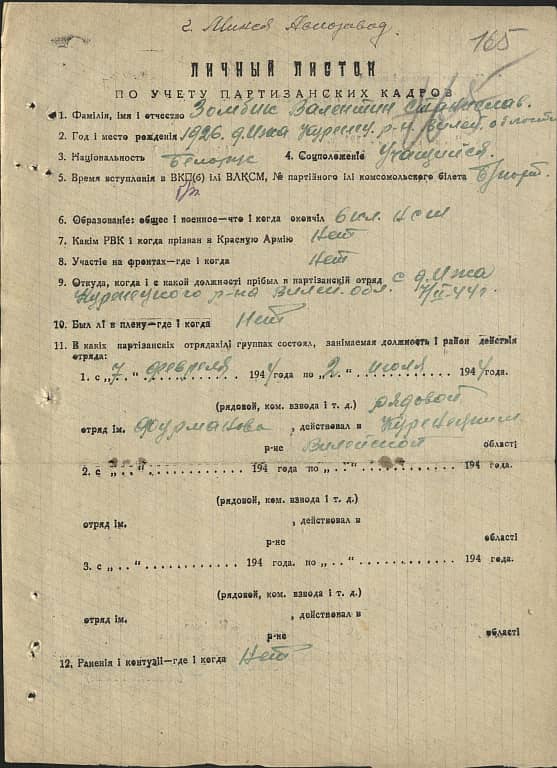 г. Минск Автозавод.
165
ЛИЧНЫЙ ЛИСТОК
ПО УЧЕТУ ПАРТИЗАНСКИХ КАДРОВ
1. Фамілія, імя і отчество Зомбик Валентин Станислав.
2. Год і место рождения 1926. д. Ижа Куренец. р-н Вилей. области
3. Національность Белорус 4. Соцположеніе Учащийся.
5. Время вступленія в ВКП(б) ілі ВЛКСМ, № партійного ілі комсомольского білета Б/парт.
6. Образованіе: общее і военное—что і когда окончіл 6 кл. НСШ
7. Какім РВК і когда прізван в Красную Армію Нет
8. Участіе на фронтах—где і когда Нет
9. Откуда, когда і с какой должності прібыл в партізанскій отряд с д. Ижа
Куренецкого р-на Вилей. обл. 7/II-44 г.
10. Был лі в плену—где і когда Нет
11. В какіх партізанскіх отрядах(и) группах состоял, занімаемая должность і район действія
отряда:
1. с „7..“ февраля 1944 года по „2..“ июля 1944 года.
(рядовой, ком. взвода і т. д.) рядовой
отряд ім. Фурманова, действовал в Куренецким
р-не Вилейской області
2. с „..“ 194 года по „..“ 194 года.
(рядовой, ком. взвода і т. д.)
отряд ім. , действовал в
р-не області
3. с „..“ 194 года. по „..“ 194 года.
(рядовой, ком. взвода і т. д.)
отряд ім. , действовал в
р-не області
12. Раненія і контузіі—где і когда Нет